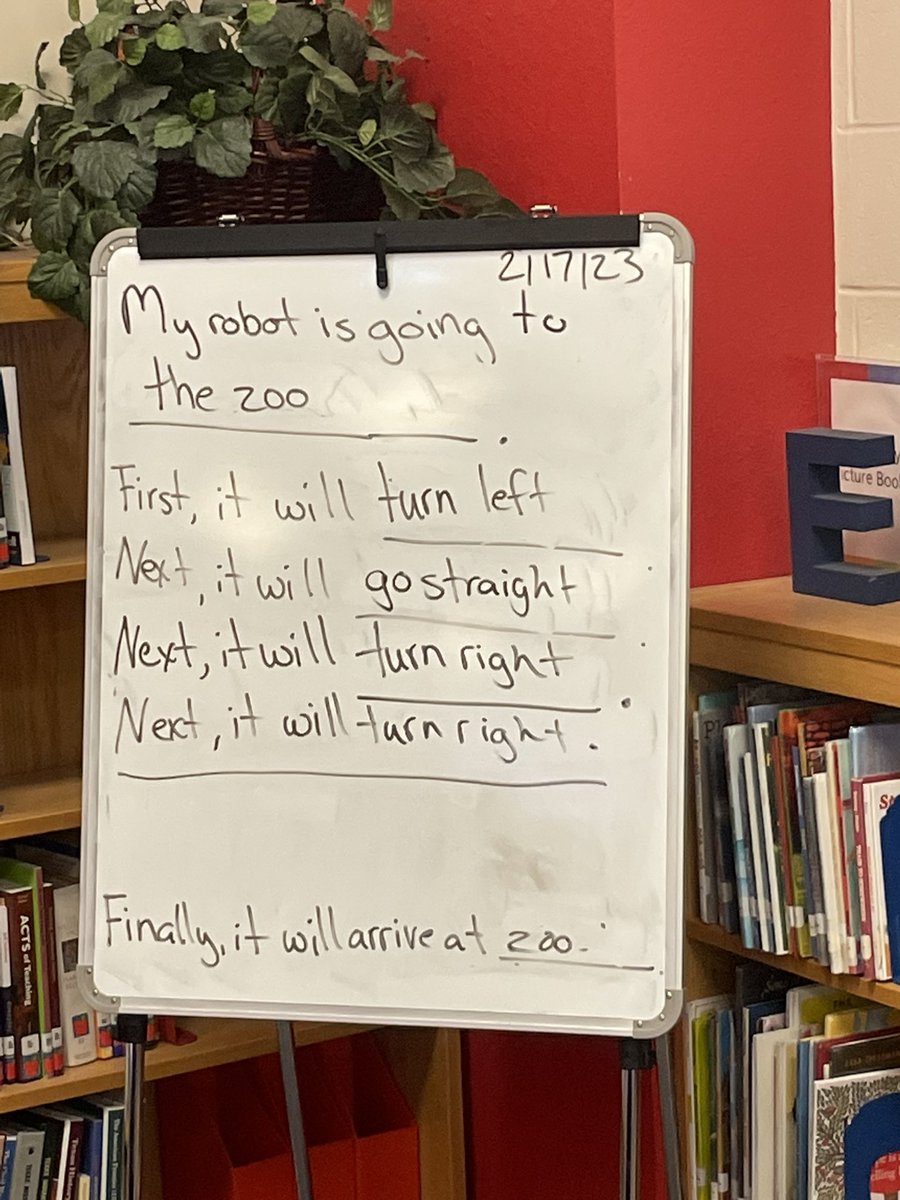 2/17/23
My robot is going to
the zoo .
First, it will turn left
Next, it will go straight .
Next, it will turn right .
Next, it will turn right .
Finally, it will arrive at zoo.
E
cture Boo
ACTS of Teaching